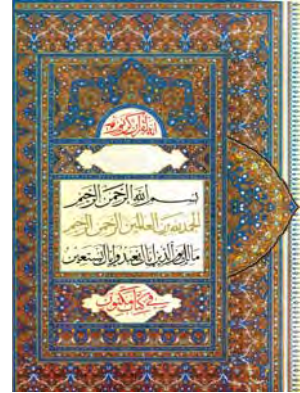 انه لقرآن كريم
بسم الله الرحمن الرحيم
الحمد لله رب العالمين الرحمن الرحيم
مالك يوم الدين اياك نعبد واياك نستعين
في كتاب مكنون